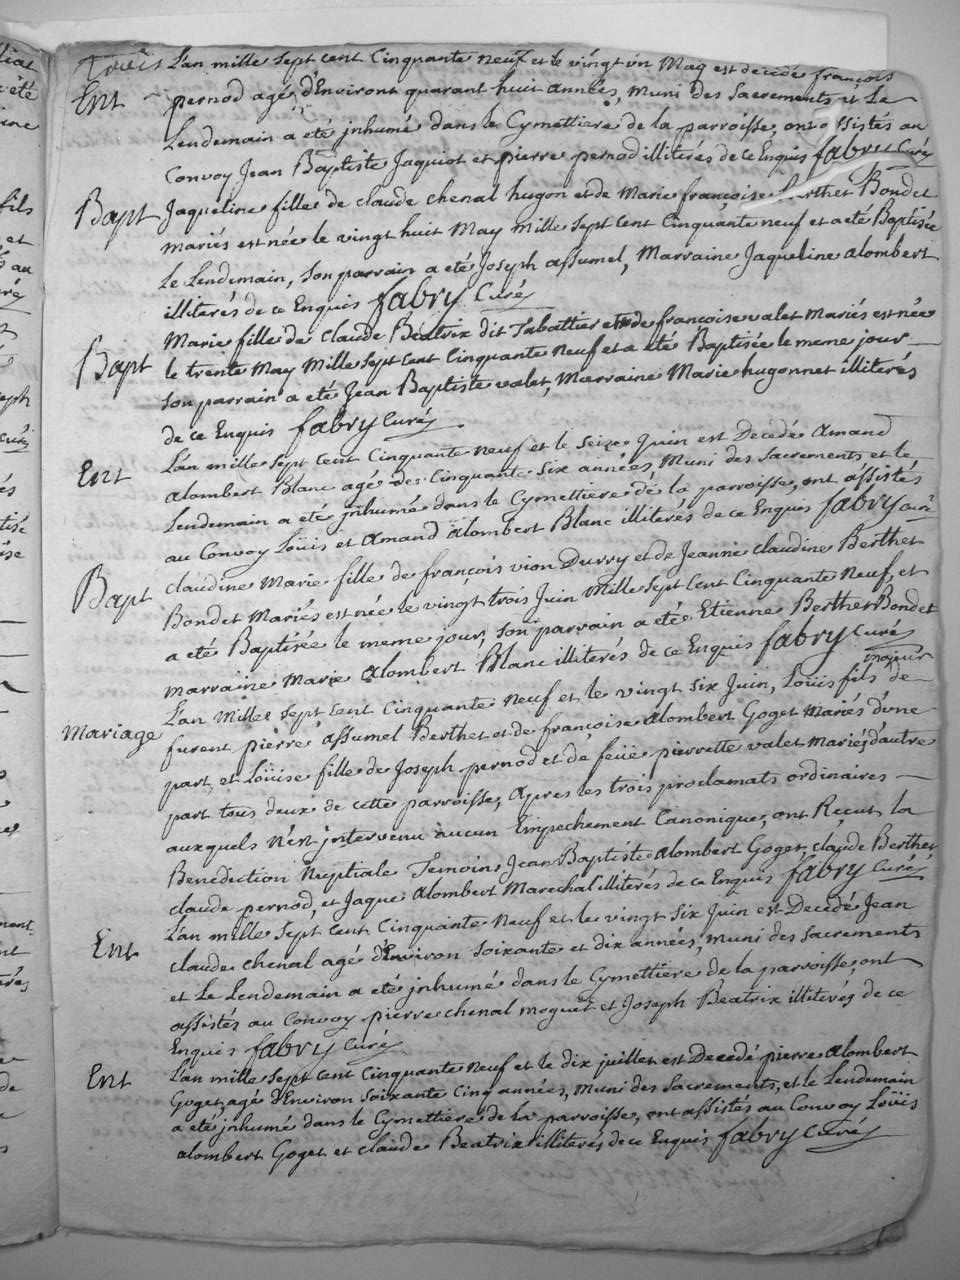 trois L'an mille sept cent Cinquante neuf et le vingt un May est decédé françois
Ent pernod agé d'Environt quarant huit années, muni des Sacrements et Le
Lendemain a eté jnhumé dans le Cymettiere de la parroisse, ont assistés au
Convoy Jean Baptiste Jaquiot et pierre pernod illiterés de ce Enquis fabry Curé
Bapt Jaqueline fille de claude chenal hugon et de Marie françoise Berthet Bondet
mariés est née le vingt huit May Mille sept Cent Cinquante neuf et a eté Baptisée
Le Lendemain, son parrain a eté Joseph assumel, Marraine Jaqueline alombert
illiterés de ce Enquis fabry Curé
Marie fille de Claude Béatrix dit Tabattier et de françoise valet Mariés est née
Bapt le trente May Mille sept Cent Cinquante Neuf et a eté Baptisée le meme jour
son parrain a eté Jean Baptiste valet, Marraine Marie hugonnet illiterés
de ce Enquis fabry Curé
Ent L'an mille sept Cent Cinquante neuf et le seize Juin est Decedé Amand
alombert Blanc agé de Cinquante six années, Muni des Sacrements et le
Lendemain a eté jnhumé dans le Cymettiere de la parroisse, ont assistés
au Convoy Loüis et Amand alombert Blanc illiterés de ce Enquis fabry Curé
Bapt claudine Marie fille de françois vion Durry et de Jeanne claudine Berthet
Bondet Mariés est née le vingt trois Juin Mille sept Cent Cinquante Neuf, et
a eté Baptisée le meme jour, son parrain a eté Etienne Berthet Bondet
marraine Marie alombert Blanc illiterés de ce Enquis fabry Curé
L'an Mille sept Cent Cinquante Neuf et le vingt six Juin, Loüis fils majeur de
Mariage furent pierre assumel Berthet et de françoise alombert Goget Mariés d'une
part, et Loüise fille de Joseph pernod et de feüe pierrette valet mariés, d'autre
part tous deux de cette parroisse, apres les trois proclamats ordinaires
auxquels n'est jntervenu aucun Empechement Canonique, ont Reçut la
Benediction Nuptiale Temoins Jean Baptiste alombert Goget, claude Berthet
claude pernod, et Jaque alombert Marechal illiterés de ce Enquis fabry Curé
Ent L'an mille sept Cent Cinquante Neuf et le vingt six Juin est Decedé Jean
claude chenal agé d'Environ soixante et dix années, muni des Sacrements
et Le Lendemain a eté jnhumé dans le Cymettiere de la parroisse, ont
assistés au Convoy pierre chenal moguet et Joseph Beatrix illiterés de ce
Enquis fabry Curé
Ent L'an mille sept Cent Cinquante Neuf et le dix juillet est Decedé pierre alombert
Goget, agé d'Environ soixante Cinq années, Muni des Sacrements, et le Lendemain
a eté jnhumé dans le Cymettiere de la parroisse, ont assistés au Convoy Loüis
alombert Goget et claude Beatrix illiterés de ce Enquis fabry Curé